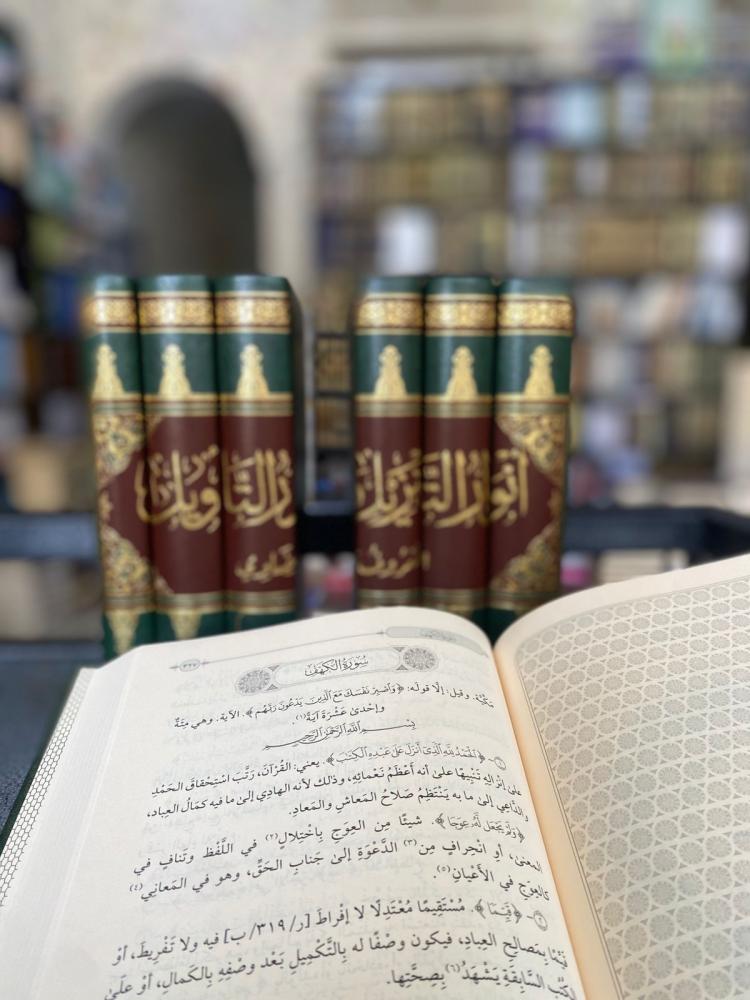 أنوار التنزيل
رار التأويل
المعروف
سورة الكهف
مَكِّيَّة، وقيل: إلَّا قولَه: ﴿وَاصْبِرْ نَفْسَكَ مَعَ الَّذِينَ يَدْعُونَ رَبَّهُم﴾. الآية. وهي مِئةٌ
وإحدى عَشْرَةَ آيَةً(١).
بِسْمِ اللَّهِ الرَّحْمَٰنِ الرَّحِيمِ
(١) - ﴿الْحَمْدُ لِلَّهِ الَّذِي أَنزَلَ عَلَىٰ عَبْدِهِ الْكِتَابَ﴾. يعني: القُرْآنَ، رَتَّبَ اسْتِحْقاقَ الحَمْدِ
على إنْزالِهِ تَنْبِيهًا على أنه أَعْظَمُ نَعْمائِهِ، وذلك لأنه الهادِي إلى ما فيه كمَالُ العِباد،
والدَّاعِي إلى ما به يَنْتَظِمُ صَلاحُ المَعاشِ والمَعادِ.
﴿وَلَمْ يَجْعَل لَّهُ عِوَجَا﴾. شيئًا مِن العِوَجِ بِاخْتِلالٍ(٢) في اللَّفْظ وتَنافٍ في
المعنى، أو انْحِرافٍ مِن(٣) الدَّعْوَةِ إلى جَنابِ الحَقِّ، وهو في المَعانِي(٤)
كالعِوَجِ في الأَعْيانِ(٥).
(٢) - ﴿قَيِّمًا﴾. مُسْتَقِيمًا مُعْتَدِلًا لا إفْراطَ [ر/ ٣١٩/ ب] فيه ولا تَفْرِيطَ، أوْ
قَيِّمًا بِمَصالِحِ العِبادِ، فيكون وصْفًا له بِالتَّكْمِيلِ بَعْد وصْفِهِ بِالكَمالِ، أوْ علَى
الكُتُبِ السَّابِقَةِ يَشْهَدُ(٦) بِصِحَّتِها.